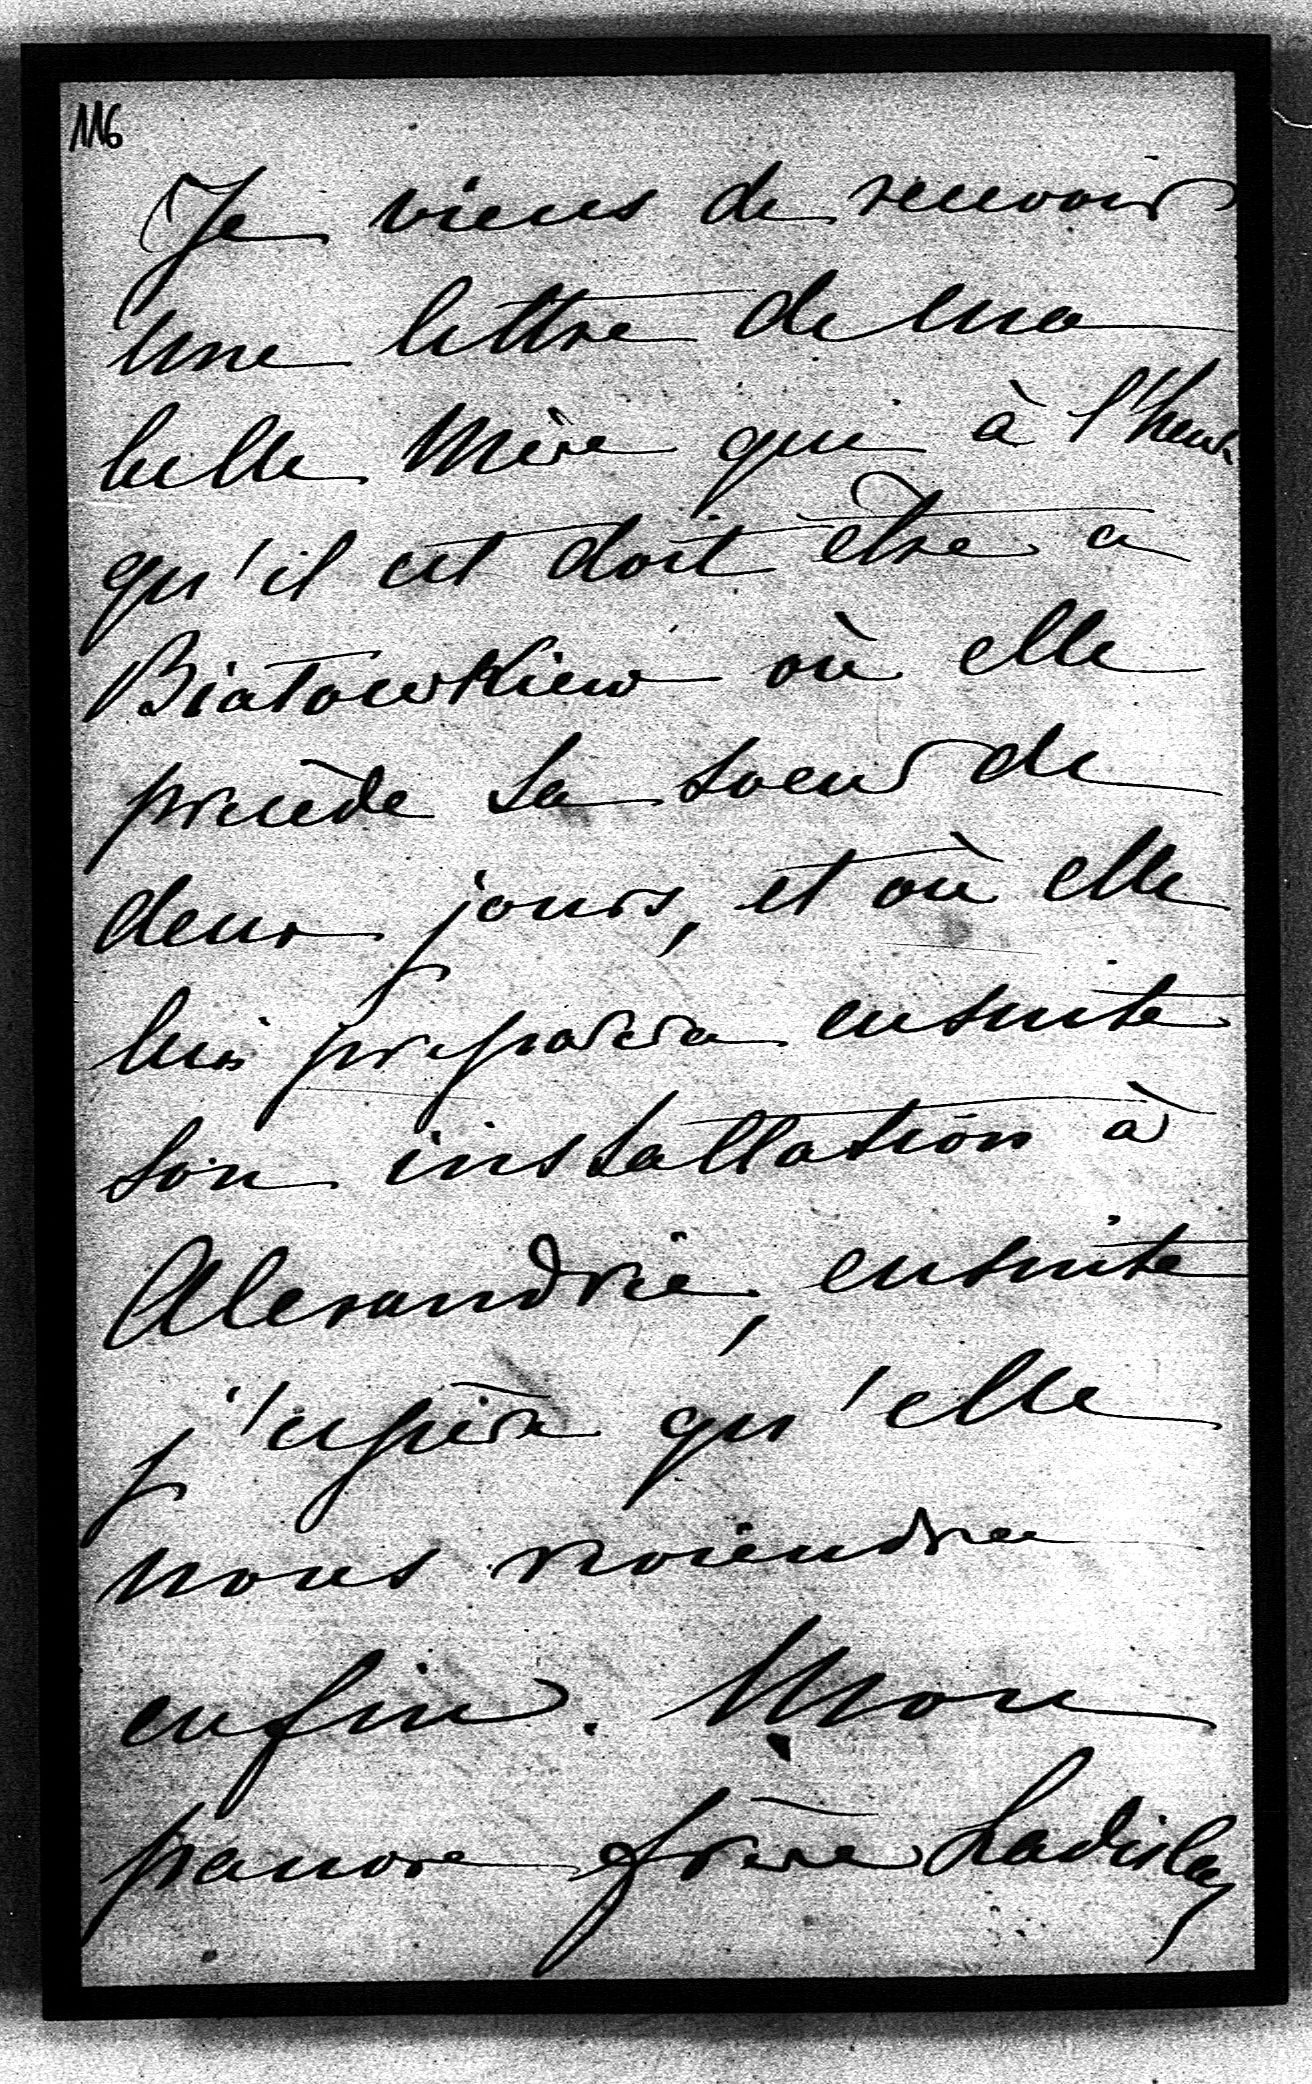 116
Je viens de recevoir
une lettre de ma
belle Mère qui à l'heure
qu'il est doit être a
Białocerkiew où elle
precède sa soeur de
deux jours, et où elle
lui preparera ensuite
son installation à
Alexandrie, ensuite
j'espère qu'elle
nous rejoindra
enfin. Mon
pauvre frère Ladislas